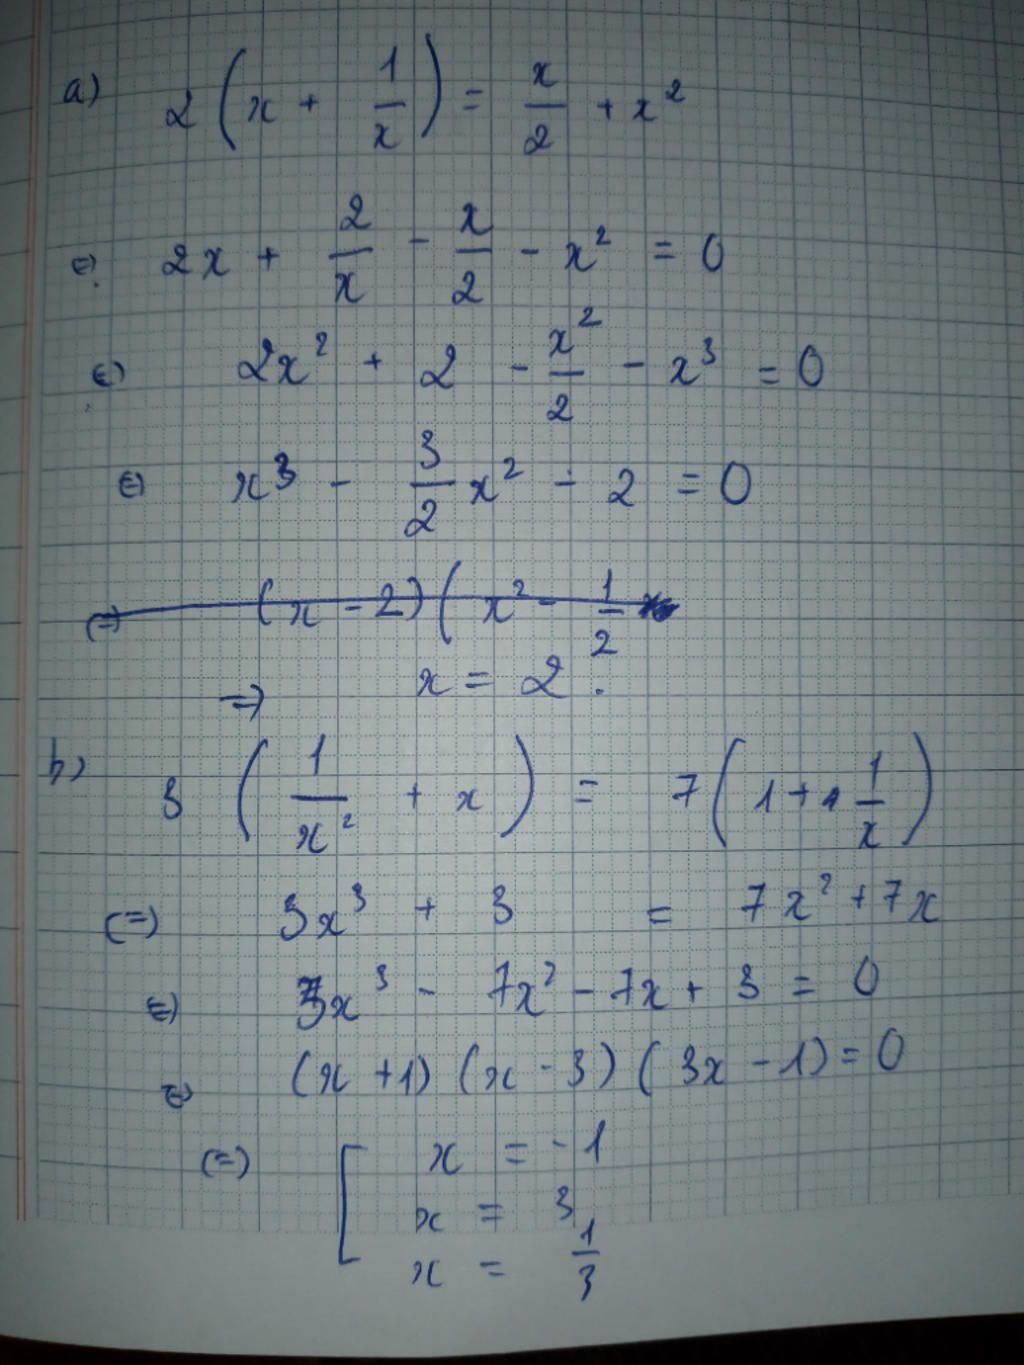 a) 2 ( x + 1/x ) = x/2 + x²
⇔ 2x + 2/x - x/2 - x² = 0
⇔ 2x² + 2 - x²/2 - x³ = 0
⇔ x³ - 3/2 x² - 2 = 0
⇔ (x - 2) ( x² - 1/2
⇒ x = 2.
b) 3 ( 1/x² + x ) = 7 ( 1 + 1/x )
⇔ 3x³ + 3 = 7x² + 7x
⇔ 3x³ - 7x² - 7x + 3 = 0
⇔ (x + 1) (x - 3) ( 3x - 1) = 0
⇔ [ x = -1
x = 3
x = 1/3